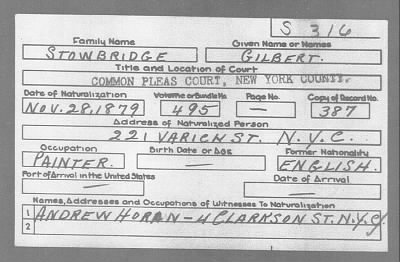 S 316
Family Name Given Name or Names
STOWBRIDGE GILBERT.
Title and Location of Court
COMMON PLEAS COURT, NEW YORK COUNTY.
Date of Naturalization Volume or Bundle No. Page No. Copy of Record No.
NOV. 28, 1879 495 — 387
Address of Naturalized Person
221 VARICH ST. N.Y.C.
Occupation Birth Date or Age Former Nationality
PAINTER. — ENGLISH.
Port of Arrival in the United States Date of Arrival
— —
Names, Addresses and Occupations of Witnesses To Naturalization
1 ANDREW HORAN - 4 CLARKSON ST. N.Y.C.
2